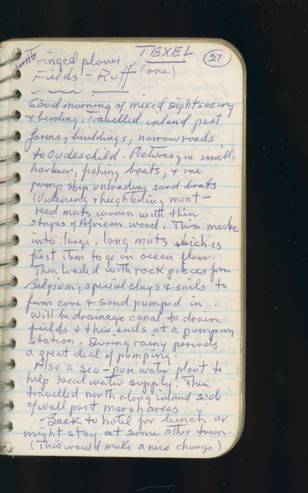 TEXEL
27
Ringed plover
Fields - Ruff (one)
Good morning of mixed sightseeing
& birding, travelled inland past
farms, buildings, narrow roads
to Oudeschild. Picturesque small
harbour, fishing boats, & one
pump ship unloading sand boats
Widening & heightening moat -
reed mats woven with thin
strips of African wood. This made
into large, long mats which is
first item to go on ocean floor.
Then loaded with rock pieces from
Belgium, special clays & soils to
form core & sand pumped in.
Will be drainage canal to drain
fields & this ends at a pumping
station. During rainy periods
a great deal of pumping.
Also a sea-pure water plant to
help local water supply. Then
travelled north along inland side
of wall past marsh areas.
Back to hotel for lunch, or
might stay at some other town.
(This would make a nice change)